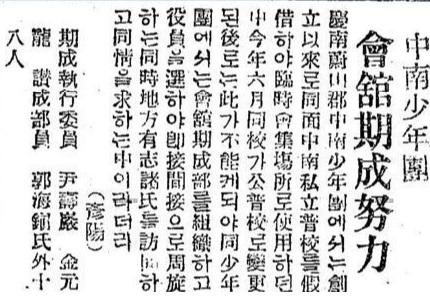 中南少年團
會舘期成努力
慶南蔚山郡中南少年團에서는創
立以來로同面中南私立普校를假
借하야臨時會集場所로使用하던
中今年六月同校가公普校로變更
된後로는此가不能케되야同少年
團에서는會舘期成部를組織하고
役員을選하야卽接間接으로周旋
하는同時地方有志諸氏를訪問하
고同情을求하는中이라더라
(彦陽)
期成執行委員 尹壽巖 金元
龍 讃成部員 郭海鎭氏外十
八人